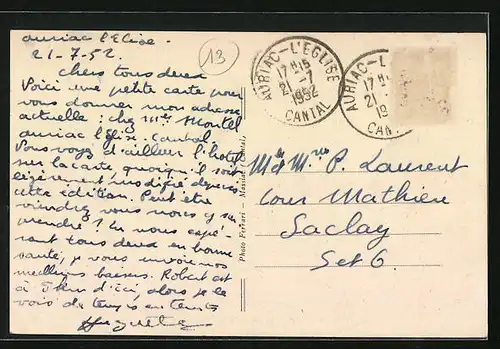 Auriac l'Eglise.
21-7-52.
13
Chers tous deux
Voici une petite carte pour
vous donner mon adresse
actuelle : chez Mme Montel
Auriac l'Eglise. Cantal.
Vous voyez d'ailleurs l'hôtel
sur la carte quoiqu'il soit
légèrement modifié depuis
cette édition. Peut être
viendrez vous nous y sur
prendre ? En vous espé-
rant tous deux en bonne
santé, je vous envoie nos
meilleurs baisers. Robert est
à 7km d'ici, alors je le
vois de temps en temps
Huguette
Photo Ferrari - Massiac (Cantal)
AURIAC-L'EGLISE
17H15
21-7
1952
CANTAL
AURIAC-L
17H
21
19
CAN
Mr et Mme P. Laurent
Cour Mathieu
Saclay
S et O